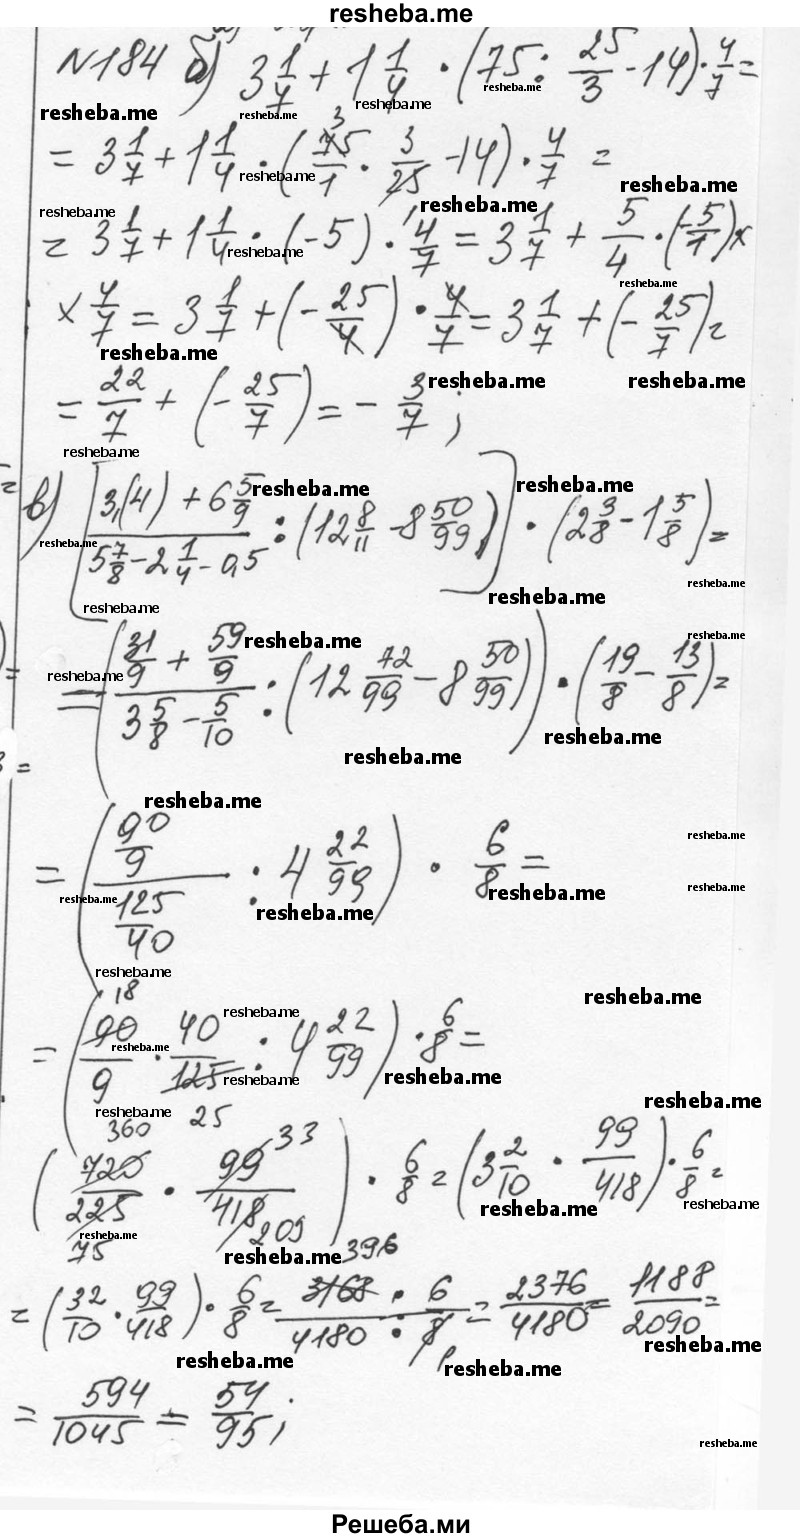 resheba.me
N184 б) 3 1/7 + 1 1/4 · (75 : 25/3 - 14) · 4/7 =
= 3 1/7 + 1 1/4 · (75/1 · 3/25 - 14) · 4/7 =
= 3 1/7 + 1 1/4 · (-5) · 4/7 = 3 1/7 + 5/4 · (-5/1) ×
× 4/7 = 3 1/7 + (-25/4) · 4/7 = 3 1/7 + (-25/7) =
= 22/7 + (-25/7) = - 3/7 ;
в) [(3,(4) + 6 5/9)/(5 7/8 - 2 1/4 - 0,5) : (12 8/11 - 8 50/99)] · (2 3/8 - 1 5/8) =
= ((31/9 + 59/9)/(3 5/8 - 5/10) : (12 72/99 - 8 50/99)) · (19/8 - 13/8) =
= ((90/9)/(125/40) : 4 22/99) · 6/8 =
= (90/9 · 40/125 : 4 22/99) · 6/8 =
(720/225 · 99/418) · 6/8 = (3 2/10 · 99/418) · 6/8 =
= (32/10 · 99/418) · 6/8 = (3168 · 6)/(4180 · 8) = 2376/4180 = 1188/2090 =
= 594/1045 = 54/95 ;
Решеба.ми